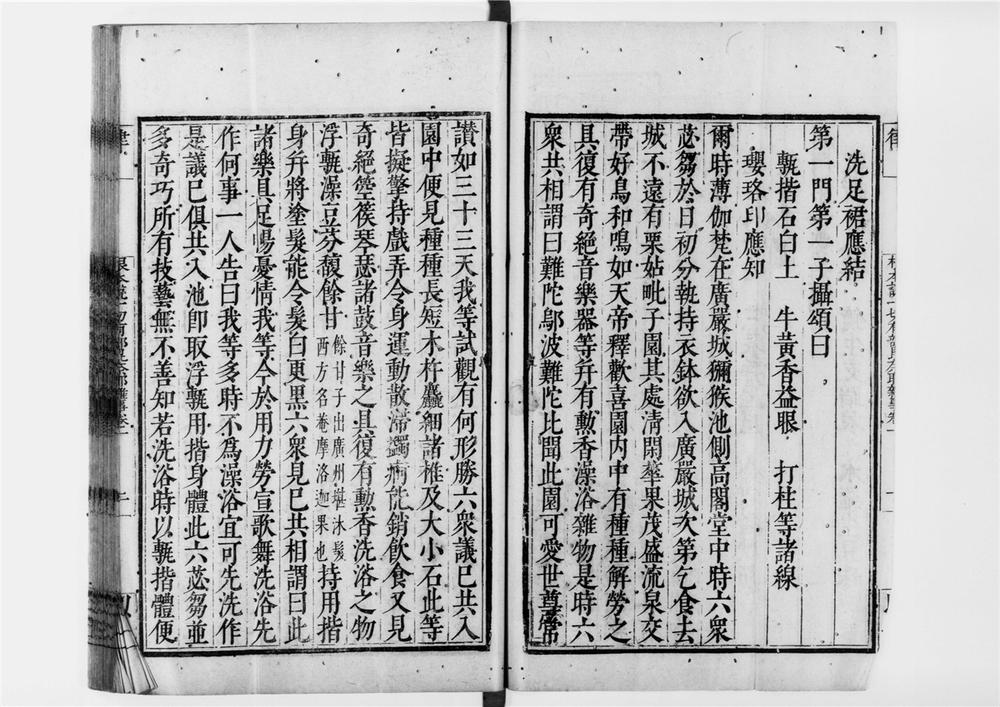 洗足裙應結
第一門第一子攝頌曰
甎揩石白土　牛黃香益眼　打柱等諸線
瓔珞印應知
爾時薄伽梵在廣嚴城獼猴池側高閣堂中時六衆
苾芻於日初分執持衣鉢欲入廣嚴城次第乞食去
城不遠有栗姑毗子園其處清閑華果茂盛流泉交
帶好鳥和鳴如天帝釋歡喜園內中有種種解勞之
具復有奇絕音樂器等并有熏香澡浴雜物是時六
衆共相謂曰難陀鄔波難陀比聞此園可愛世尊常
讃如三十三天我等試觀有何形勝六衆議已共入
園中便見種種長短木杵麤細諸椎及大小石此等
皆擬擎持戲弄令身運動散滯蠲痾能銷飲食又見
奇絕箜篌琴瑟諸鼓音樂之具復有熏香洗浴之物
浮甎澡豆芬馥餘甘餘甘子出廣州堪沐髮西方名菴摩洛迦果也持用揩
身并將塗髮能令髮白更黑六衆見已共相謂曰此
諸樂具足暢憂情我等今於用力勞宣歌舞洗浴先
作何事一人告曰我等多時不爲澡浴宜可先洗作
是議已俱共入池卽取浮甎用揩身體此六苾芻並
多奇巧所有技藝無不善知若洗浴時以甎揩體便
律